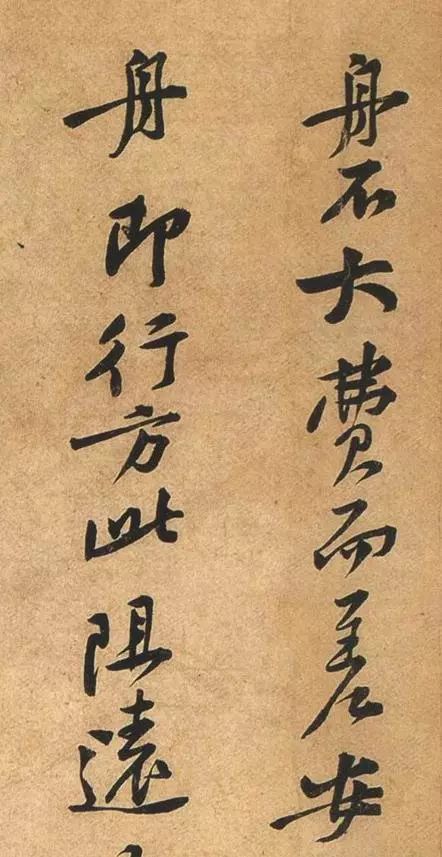 舟不大费而差安
舟即行方此阻远